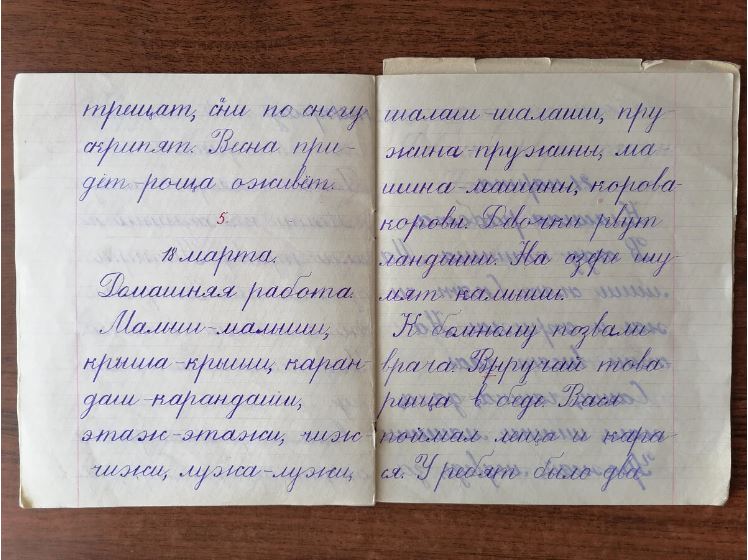 трещат, они по снегу
скрипят. Весна при-
дёт роща оживёт.
5.
18 марта.
Домашняя работа.
Малыш-малыши,
крыша-крыши, каран-
даш-карандаши,
этаж-этажи, чиж-
чижи, лужа-лужи,
шалаш-шалаши, пру-
жина-пружины, ма-
шина-машины, корова-
коровы. Девочки рвут
ландыши. На озере шу-
мят камыши.
К больному позвали
врача. Выручай това-
рища в беде. Вася
поймал леща и кара-
ся. У ребят было два